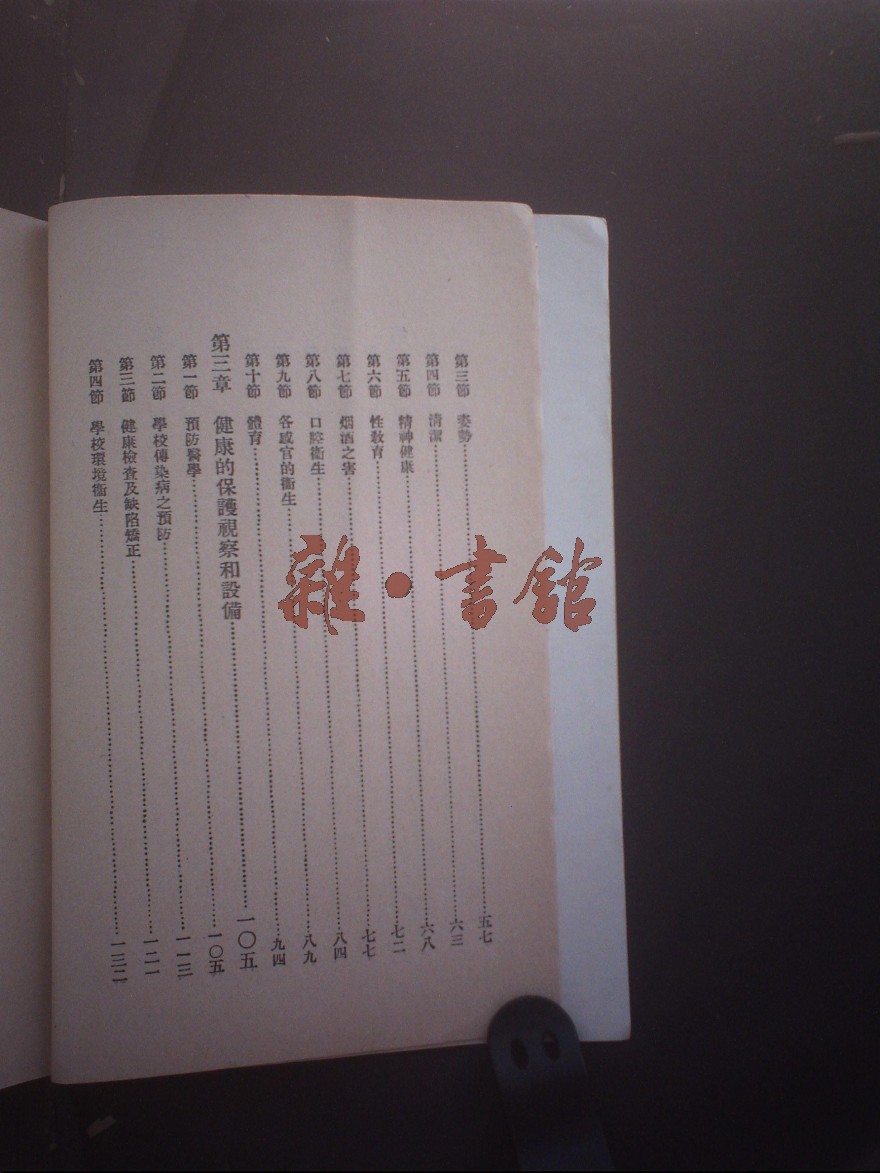 第三節 姿勢……五七
第四節 清潔……六三
第五節 精神健康……六八
第六節 性教育……七二
第七節 烟酒之害……七七
第八節 口腔衞生……八四
第九節 各感官的衞生……八九
第十節 體育……九四
第三章 健康的保護視察和設備……一〇五
第一節 預防醫學……一〇五
第二節 學校傳染病之預防……一一三
第三節 健康檢查及缺陷矯正……一二一
第四節 學校環境衞生……一三二
雜·書館